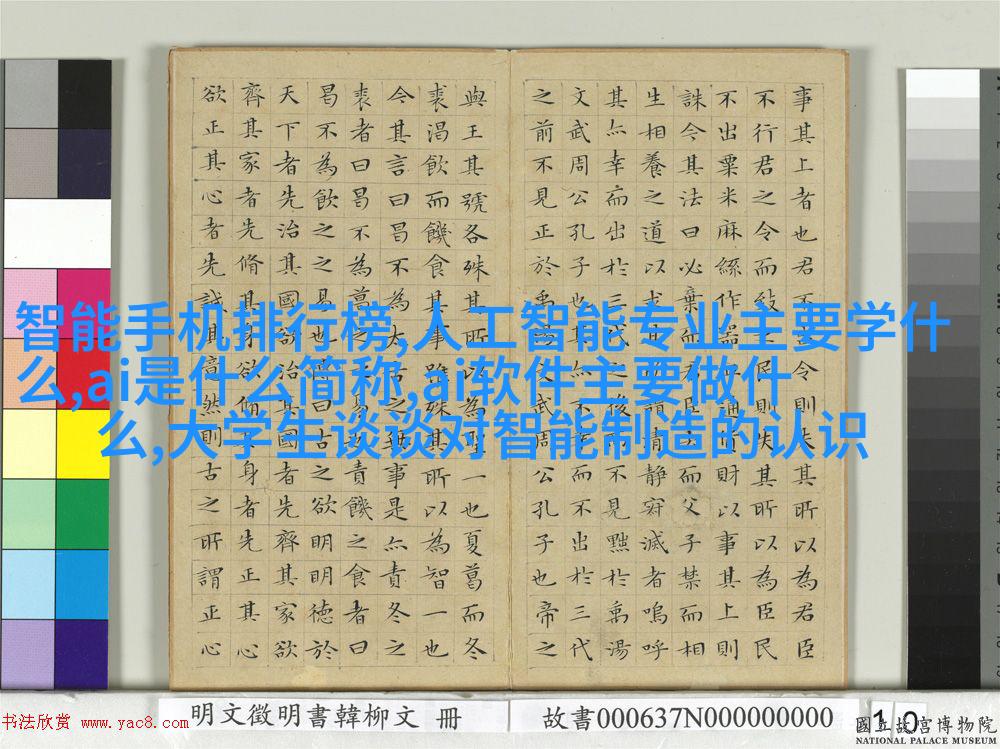 事其上者也君不出令則失其所以為君臣
不行君之令而致之民則失其所以為臣民
不出粟米麻絲作器皿通貨財以事其上則
誅今其法曰必棄而君臣去而父子禁而相
生相養之道以求其所謂清靜寂滅者嗚呼
其亦幸而出於三代之後而不見黜於禹湯
文武周公孔子也其亦不幸而不出於三代
之前不見正於禹湯文武周公孔子也帝之
與王其號各殊其所以為聖一也夏葛而冬
裘渴飲而饑食其事雖殊其所以為智一也
今其言曰曷不為太古之無事是亦責冬之
裘者曰曷不為葛之之易也責饑之食者曰
曷不為飲之之易也傳曰古之欲明明德於
天下者先治其國欲治其國者先齊其家欲
齊其家者先脩其身欲脩其身者先正其心
欲正其心者先誠其意然則古之所謂正心
智能手机排行榜,人工智能专业主要学什
么,ai是什么简称,ai软件主要做什
么,大学生谈谈对智能制造的认识
明文徵明書韓柳文 冊
故書000637N000000000
10
國立故宮博物院
NATIONAL PALACE MUSEUM
书法欣赏 www.yac8.com